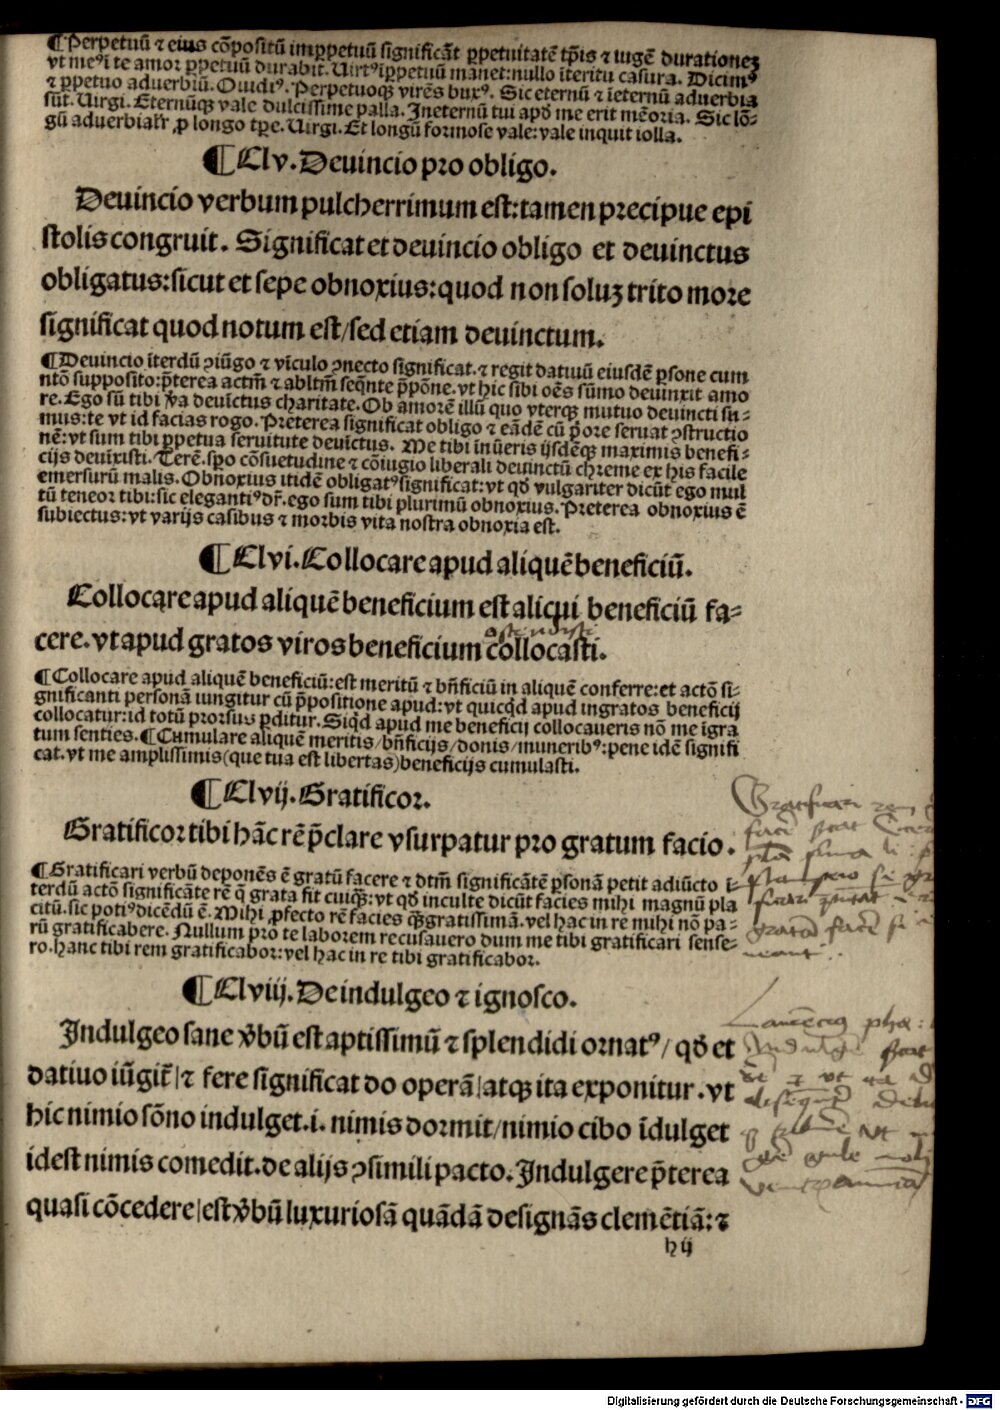 ¶Perpetuū ⁊ eius cōpositū imꝑpetuū significāt ꝑpetuitatē tꝑis ⁊ iugē durationeꝫ
vt meꝰ i te amor ꝑpetuū durabit. Uirtꝰ iꝑpetuū manet: nullo īteritu casura. Dicimꝰ
⁊ ꝑpetuo aduerbiū. Ouidiꝰ. Perpetuoqꝫ virēs buxꝰ. Sic eternū ⁊ īeternū aduerbia
sūt. Uirgi. Eternūqꝫ vale dulcissime palla. Ineternū tui apđ me erit mēoria. Sic lō⸗
gū aduerbialr̄ ꝓ longo tꝑe. Uirgi. Et longū formose vale: vale inquit iolla.
¶Clv. Deuincio pro obligo.
Deuincio verbum pulcherrimum est: tamen precipue epi
stolis congruit. Significat et deuincio obligo et deuinctus
obligatus: sicut et sepe obnoxius: quod non soluꝫ trito more
significat quod notum est/ sed etiam deuinctum.
¶Deuincio īterdū ɔiūgo ⁊ vīculo ɔnecto significat. ⁊ regit datiuū eiusdē ꝑsone cum
ntō supposito: p̄terea actm̄ ⁊ abltm̄ seq̄nte p̄pōne. vt hic sibi oēs sūmo deuinxit amo
re. Ego sū tibi ꝟa deuīctus charitate. Ob amorē illū quo vterqꝫ mutuo deuincti su⸗
mus: te vt id facias rogo. Preterea significat obligo ⁊ eādē cū p̄ore seruat ɔstructio
nē: vt sum tibi ꝑpetua seruitute deuictus. Me tibi inueris ijsdēqꝫ maximis benefi⸗
cijs deuixisti. Terē. sꝑo cōsuetudine ⁊ cōiugio liberali deuinctū chreme ex his facile
emersurū malis. Obnoxius itidē obligatꝰ significat: vt qđ vulgariter dicūt ego mul
tū teneor tibi: sic elegantiꝰ dr̄. ego sum tibi plurimū obnoxius. Preterea obnoxius ē
subiectus: vt varijs casibus ⁊ morbis vita nostra obnoxia est.
¶Clvi. Collocare apud aliquē beneficiū.
Collocare apud aliquē beneficium est alicui beneficiū fa⸗
cere. vt apud gratos viros beneficium collocasti.
¶Collocare apud aliquē beneficiū: est meritū ⁊ bn̄ficiū in aliquē conferre: et actō si⸗
gnificanti personā iungitur cū p̄positione apud: vt quicqđ apud ingratos beneficij
collocatur: id totū prorsus ꝑditur. Siqđ apud me beneficij collocaueris nō me īgra
tum senties. ¶Cumulare aliquē meritis/ bn̄ficijs/ donis/ muneribꝰ: pene idē signifi
cat. vt me amplissimis (que tua est libertas) beneficijs cumulasti.
¶Clvij. Gratificor.
Gratificor tibi hāc rē p̄clare vsurpatur pro gratum facio.
¶Gratificari verbū deponēs ē gratū facere ⁊ dtm̄ significātē ꝑsonā petit adiūcto ī⸗
terdū actō significāte rē q̄ grata fit cuiqꝫ: vt qđ inculte dicūt facies mihi magnū pla
citū. sic potiꝰ dicēdū ē. Mihi ꝓfecto rē facies qꝫgratissimā. vel hac in re mihi nō pa⸗
rū gratificabere. Nullum pro te laborem recusauero dum me tibi gratificari sense⸗
ro. hanc tibi rem gratificabor: vel hac in re tibi gratificabor.
¶Clviij. De indulgeo ⁊ ignosco.
Indulgeo sane ꝟbū est aptissimū ⁊ splendidi ornatꝰ/ qđ et
datiuo iūgit̄ / ⁊ fere significat do operā / atqꝫ ita exponitur. vt
hic nimio sōno indulget .i. nimis dormit/ nimio cibo īdulget
idest nimis comedit. de alijs ɔsimili pacto. Indulgere p̄terea
quasi cōcedere / est ꝟbū luxuriosā quādā designās clemētiā: ⁊
h ij
Digitalisierung gefördert durch die Deutsche Forschungsgemeinschaft - DFG